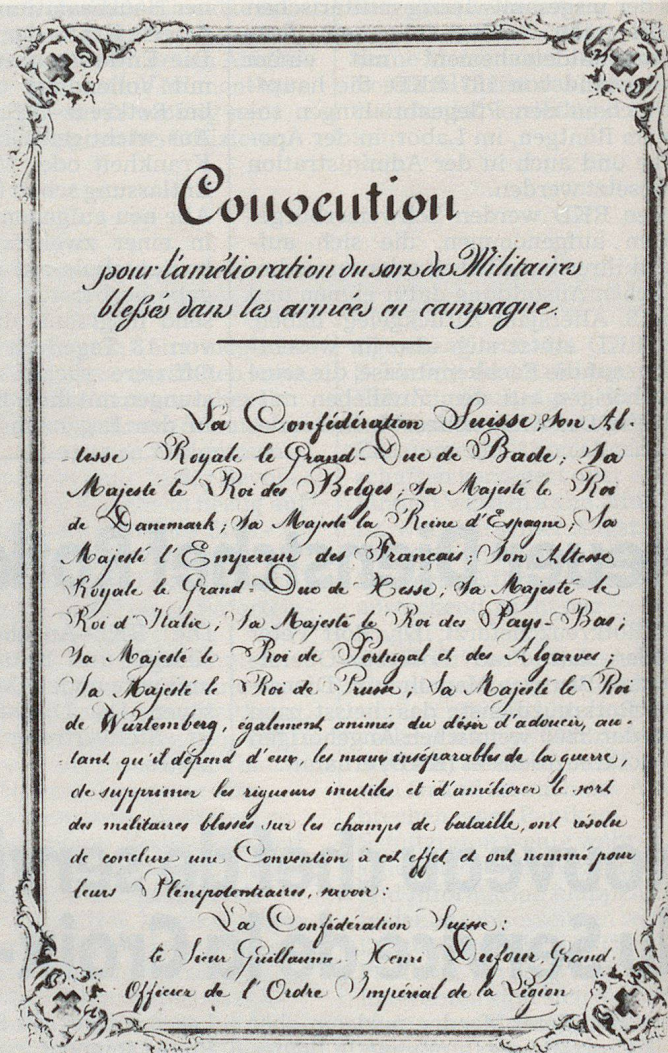 Convention
pour l'amélioration du sort des Militaires
blessés dans les armées en campagne.
La Confédération Suisse; Son Al-
-tesse Royale le Grand-Duc de Bade; Sa
Majesté le Roi des Belges; Sa Majesté le Roi
de Danemark; Sa Majesté la Reine d'Espagne; Sa
Majesté l'Empereur des Français; Son Altesse
Royale le Grand-Duc de Hesse; Sa Majesté le
Roi d'Italie; Sa Majesté le Roi des Pays-Bas;
Sa Majesté le Roi de Portugal et des Algarves;
Sa Majesté le Roi de Prusse; Sa Majesté le Roi
de Wurtemberg, également animés du désir d'adoucir, au-
-tant qu'il dépend d'eux, les maux inséparables de la guerre,
de supprimer les rigueurs inutiles et d'améliorer le sort
des militaires blessés sur les champs de bataille, ont résolu
de conclure une Convention à cet effet et ont nommé pour
leurs Plénipotentiaires, savoir:
La Confédération Suisse:
le Sieur Guillaume-Henri Dufour, Grand
Officier de l'Ordre Impérial de la Légion